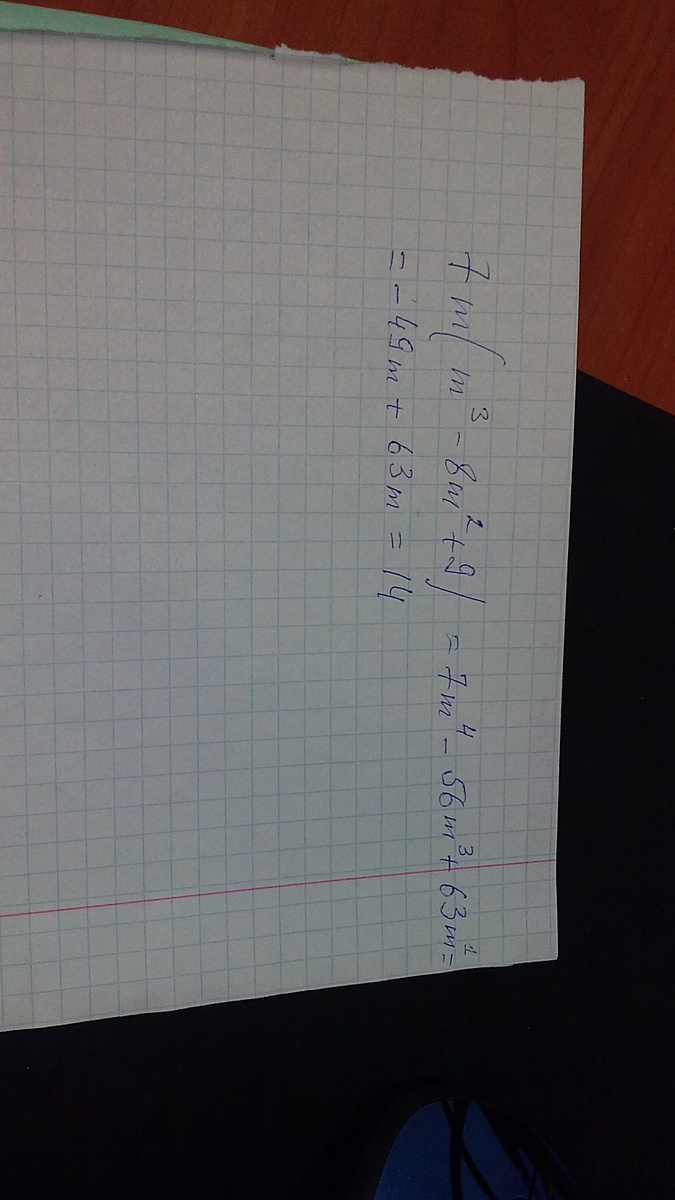 7m(m³-8m²+9)=7m⁴-56m³+63m¹=
=-49m+63m=14